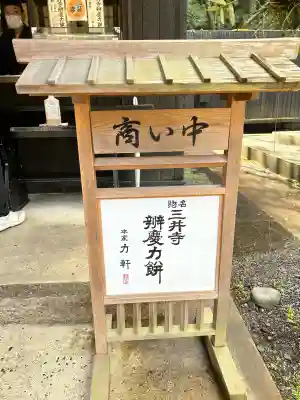 商い中
名物
三井寺
辨慶力餅
本家 力軒